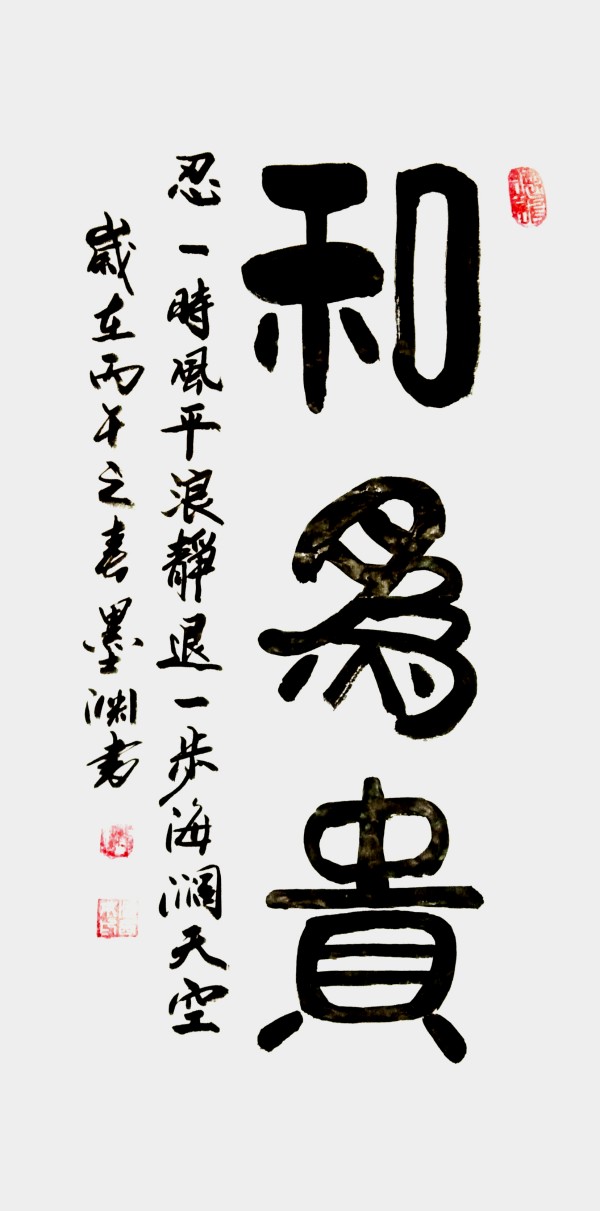 和為貴
忍一時風平浪靜退一步海濶天空
歲在丙午之春墨渊书